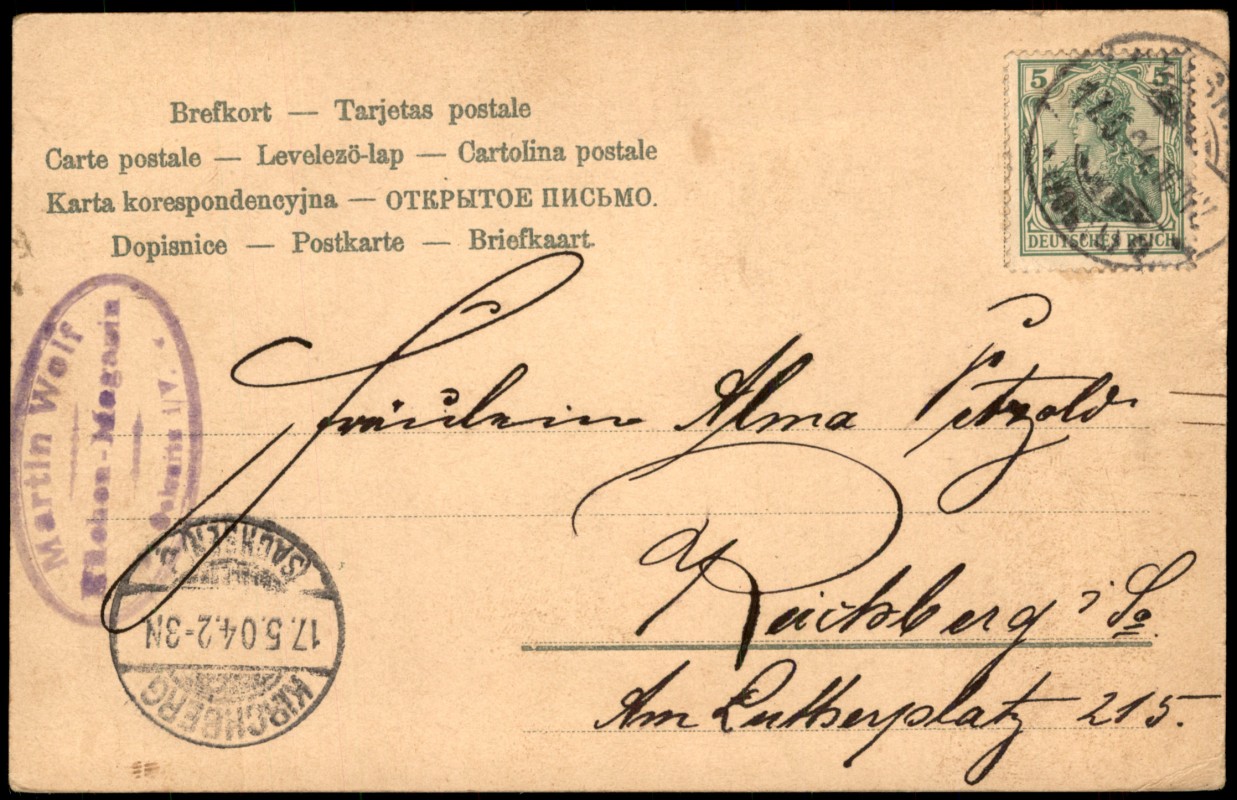 Brefkort — Tarjetas postale
Carte postale — Levelezö-lap — Cartolina postale
Karta korespondencyjna — ОТКРЫТОЕ ПИСЬМО.
Dopisnice — Postkarte — Briefkaart.
5 5
DEUTSCHES REICH
Martin Wolf
Küchen-Magazin
i/V.
Fräulein Alma Petzold
Kirchberg i Sa.
Am Lutherplatz 215.
KIRCHBERG
17.5.04.2-3N
(SACHSEN)